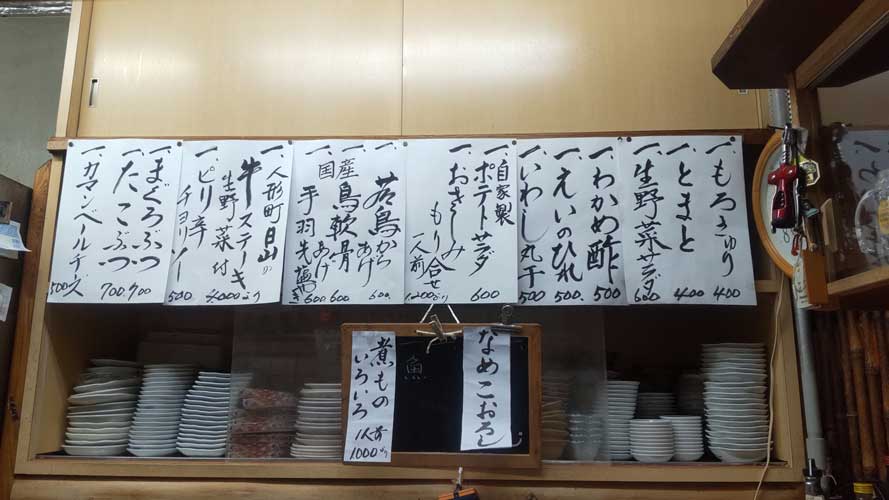 一、もろきゅり
400
一、とまと
400
一、生野菜サラダ
600
一、わかめ酢
500
一、えいのひれ
500.
一、いわし丸干
500
自家製
一、ポテトサラダ
600
一、おさしみ
もり合せ
一人前
1,200より
一、若鳥から
あげ
600
一、国産鳥軟骨
あげ
600
一、手羽先塩焼き
600
一、人形町日山の
牛ステーキ
生野菜付
4,000より
一、ピリ辛
チョリソー
500
一、まぐろぶつ
900
一、たこぶつ
700.
一、カマンベールチーズ
500
なめこおろし
煮もの
いろいろ
1人前
1000より